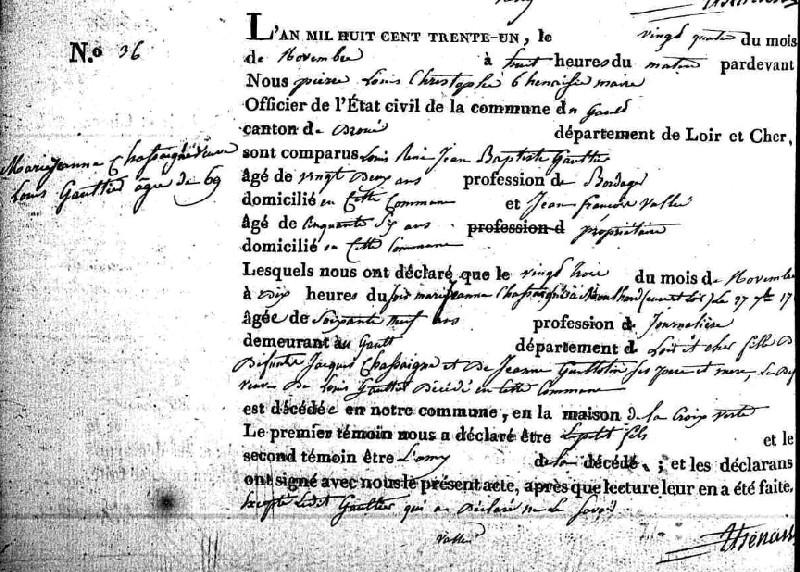 N.o 36
Marie Jeanne Chassaigne veuve
Louis Gaultier âgée de 69
L'AN MIL HUIT CENT TRENTE-UN, le vingt quatre du mois
de Novembre à huit heures du matin pardevant
Nous pierre Louis Christophe Thenaisie maire
Officier de l'État civil de la commune du Gault
canton de Droué département de Loir et Cher,
sont comparus Louis René Jean Baptiste Gaultier
âgé de vingt Deux ans profession de Bordager
domicilié en Cette Commune et Jean francois Vallée
âgé de Cinquante Six ans profession d propriétaire
domicilié en Cette Commune
Lesquels nous ont déclaré que le vingt trois du mois de Novembre
à Dix heures du soir marie Jeanne Chassaigne née à le 27 7bre 17
âgée de Soixante neuf ans profession de Journalière
demeurant au Gault département d Loir et cher fille D
Défunts Jacques Chassaigne et De Jeanne ses père et mere,
veuve De Louis Gaultier Décédé en Cette Commune
est décédée en notre commune, en la maison de la Croix verte
Le premier témoin nous a déclaré être le petit fils et le
second témoin être L'amy de la décédé, ; et les déclarans
ont signé avec nous le présent acte, après que lecture leur en a été faite,
Excepté Ledit Gaultier qui a Déclaré ne le savoir
Vallée